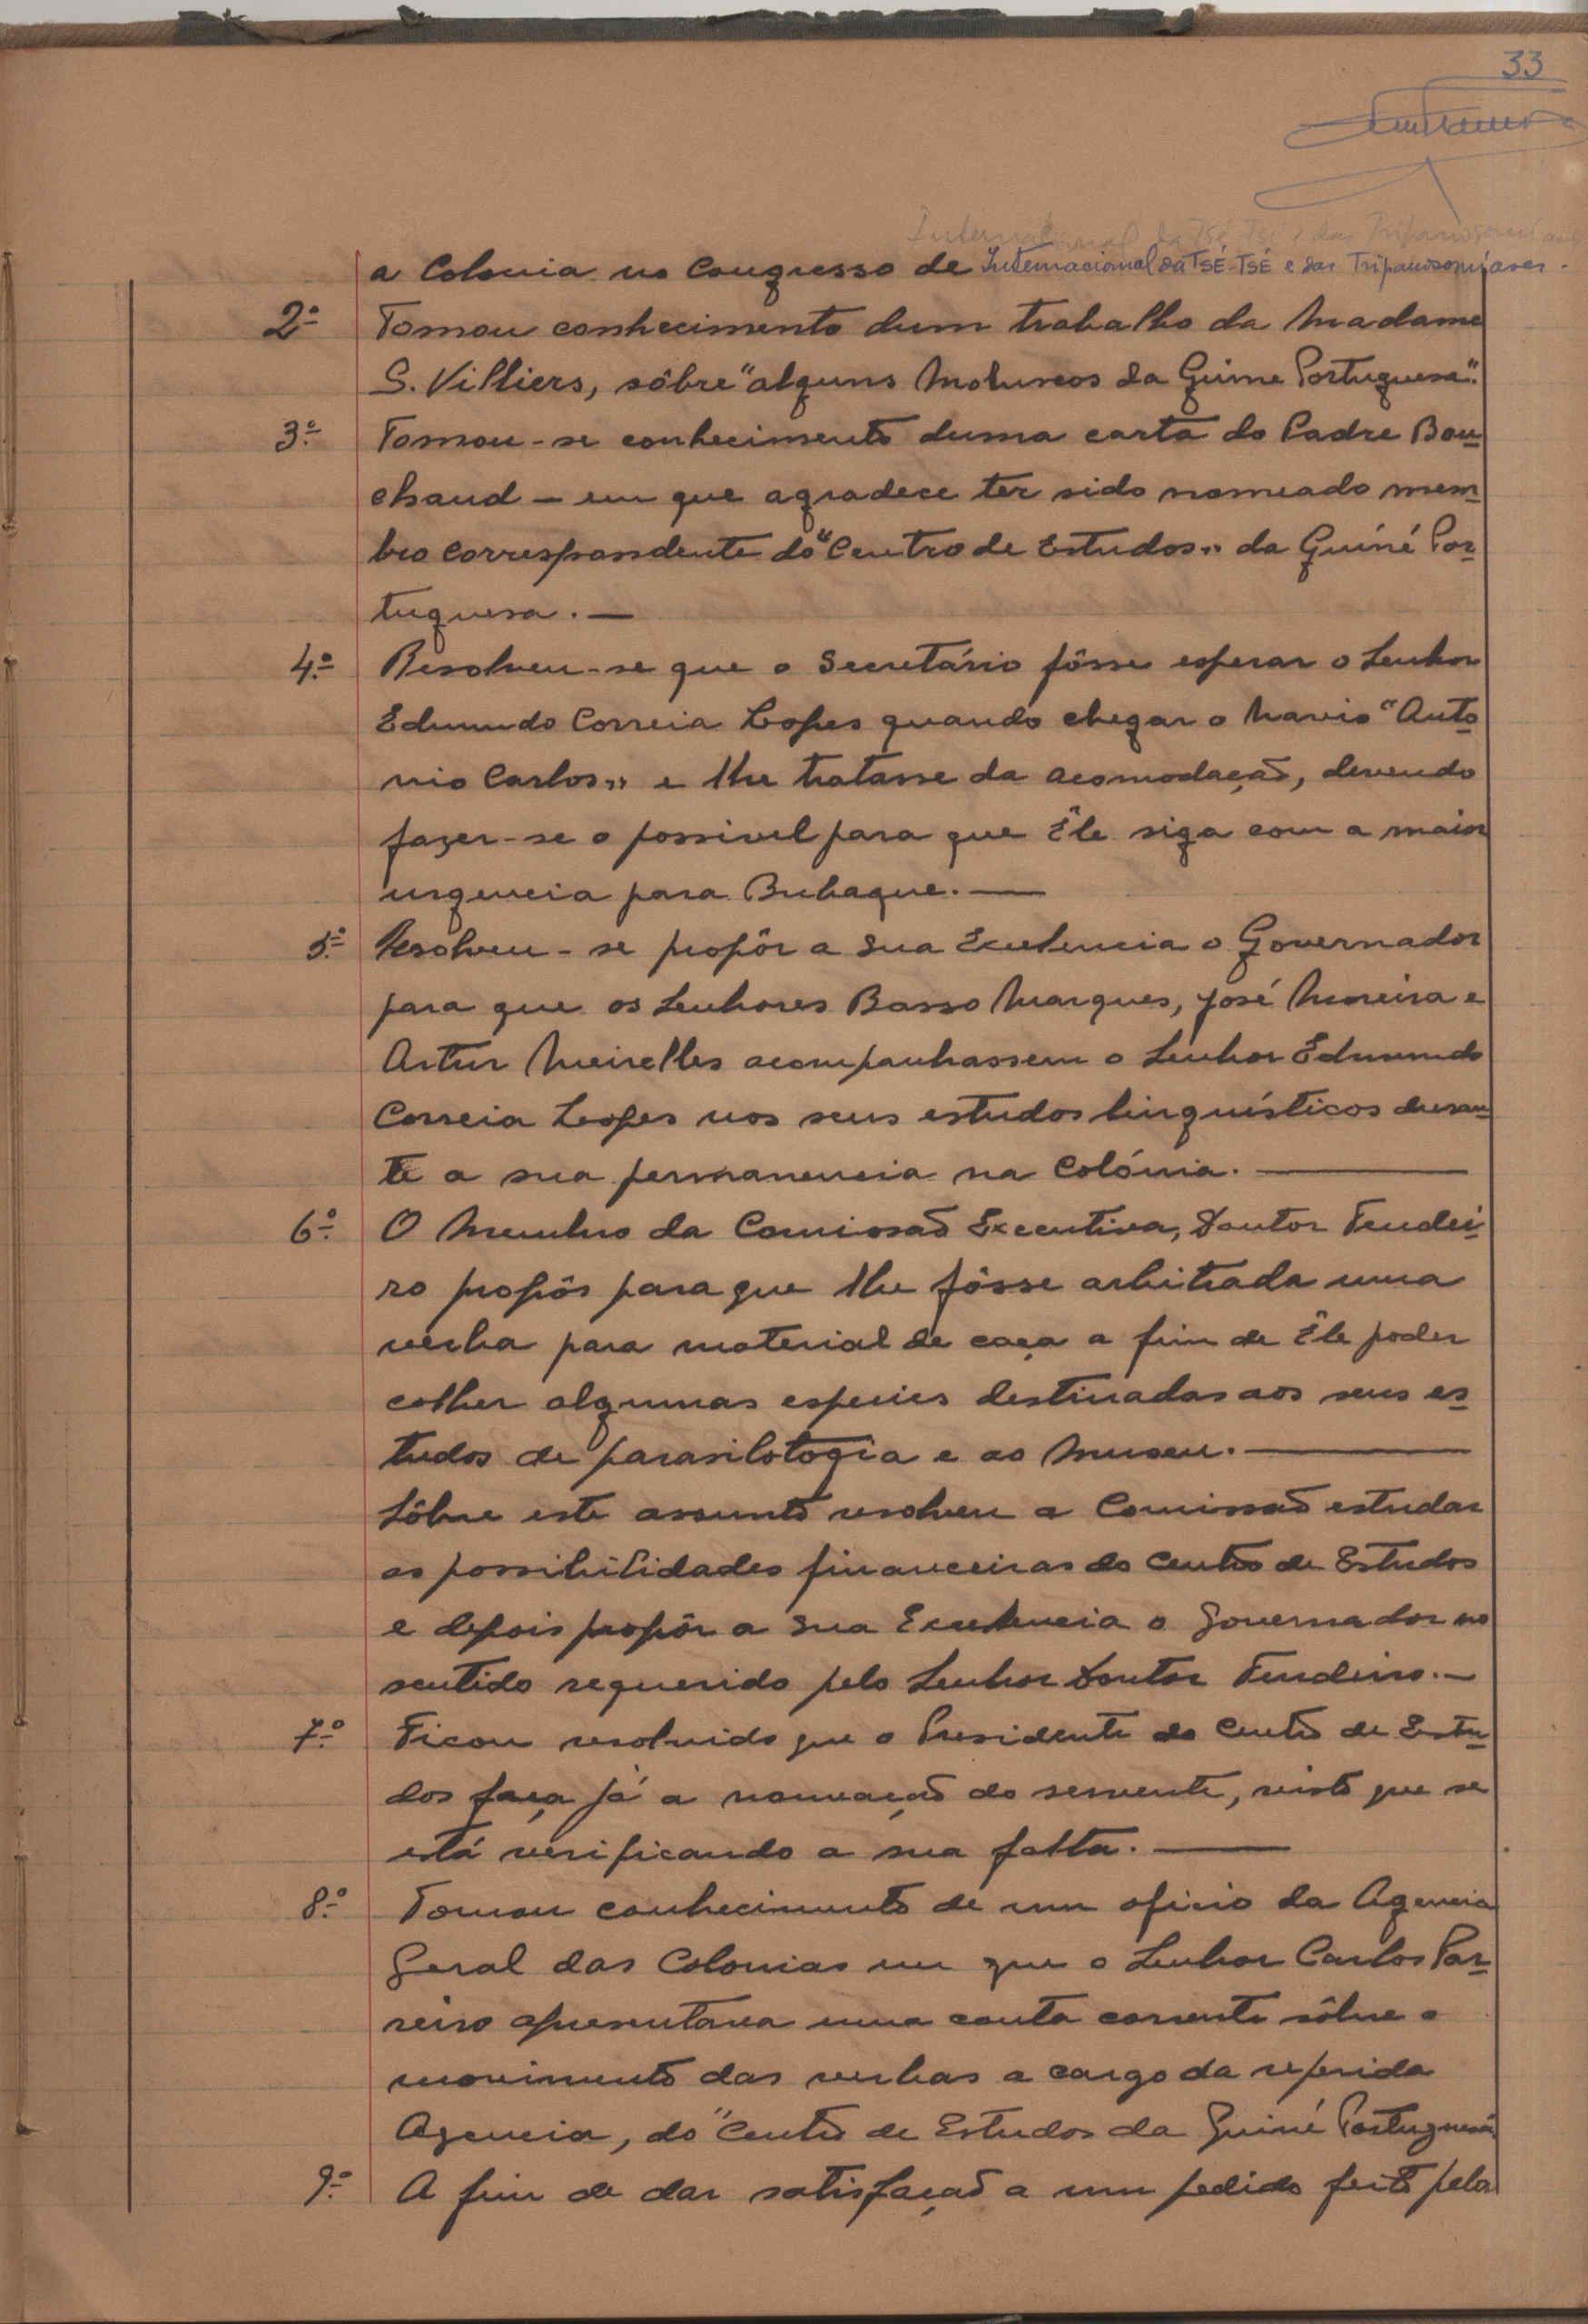 33
Internacional da Tsé-Tsé e das Tripanosomíases
a Colonia no Congresso de Internacional da TSÉ-TSÉ e das Tripanosomíases.
2.º Tomou conhecimento dum trabalho da Madame
S. Villiers, sôbre "alguns Moluscos da Guine Portuguesa".
3.º Tomou-se conhecimento duma carta do Padre Bou-
chaud – em que agradece ter sido nomeado mem-
bro correspondente do "Centro de Estudos" da Guiné Por-
tuguesa. —
4.º Resolveu-se que o Secretário fôsse esperar o Senhor
Edmundo Correia Lopes quando chegar o navio "Anto-
nio Carlos" e lhe tratasse da acomodação, devendo
fazer-se o possivel para que êle siga com a maior
urgencia para Bubaque. —
5.º Resolveu-se propôr a Sua Excelencia o Governador
para que os Senhores Basso Marques, José Moreira e
Artur Meirelles acompanhassem o Senhor Edmundo
Correia Lopes nos seus estudos linguísticos duran-
te a sua permanencia na Colónia. —
6.º O Membro da Comissão Executiva, Doutor Tendei-
ro propôs para que lhe fôsse arbitrada uma
verba para material de caça a fim de êle poder
colher algumas especies destinadas aos seus es-
tudos de parasilotogia e ao Museu. —
Sôbre este assunto resolveu a Comissão estudar
as possibilidades financeiras do Centro de Estudos
e depois propôr a Sua Excelencia o Governador no
sentido requerido pelo Senhor Doutor Tendeiro. —
7.º Ficou resolvido que o Presidente do Centro de Estu-
dos faça já a nomeação do servente, visto que se
está verificando a sua falta. —
8.º Tomou conhecimento de um oficio da Agencia
Geral das Colonias em que o Senhor Carlos Par-
reiro apresentava uma conta corrente sôbre o
movimento das verbas a cargo da referida
Agencia, do "Centro de Estudos da Guiné Portuguesa"
9.º A fim de dar satisfação a um pedido feito pela